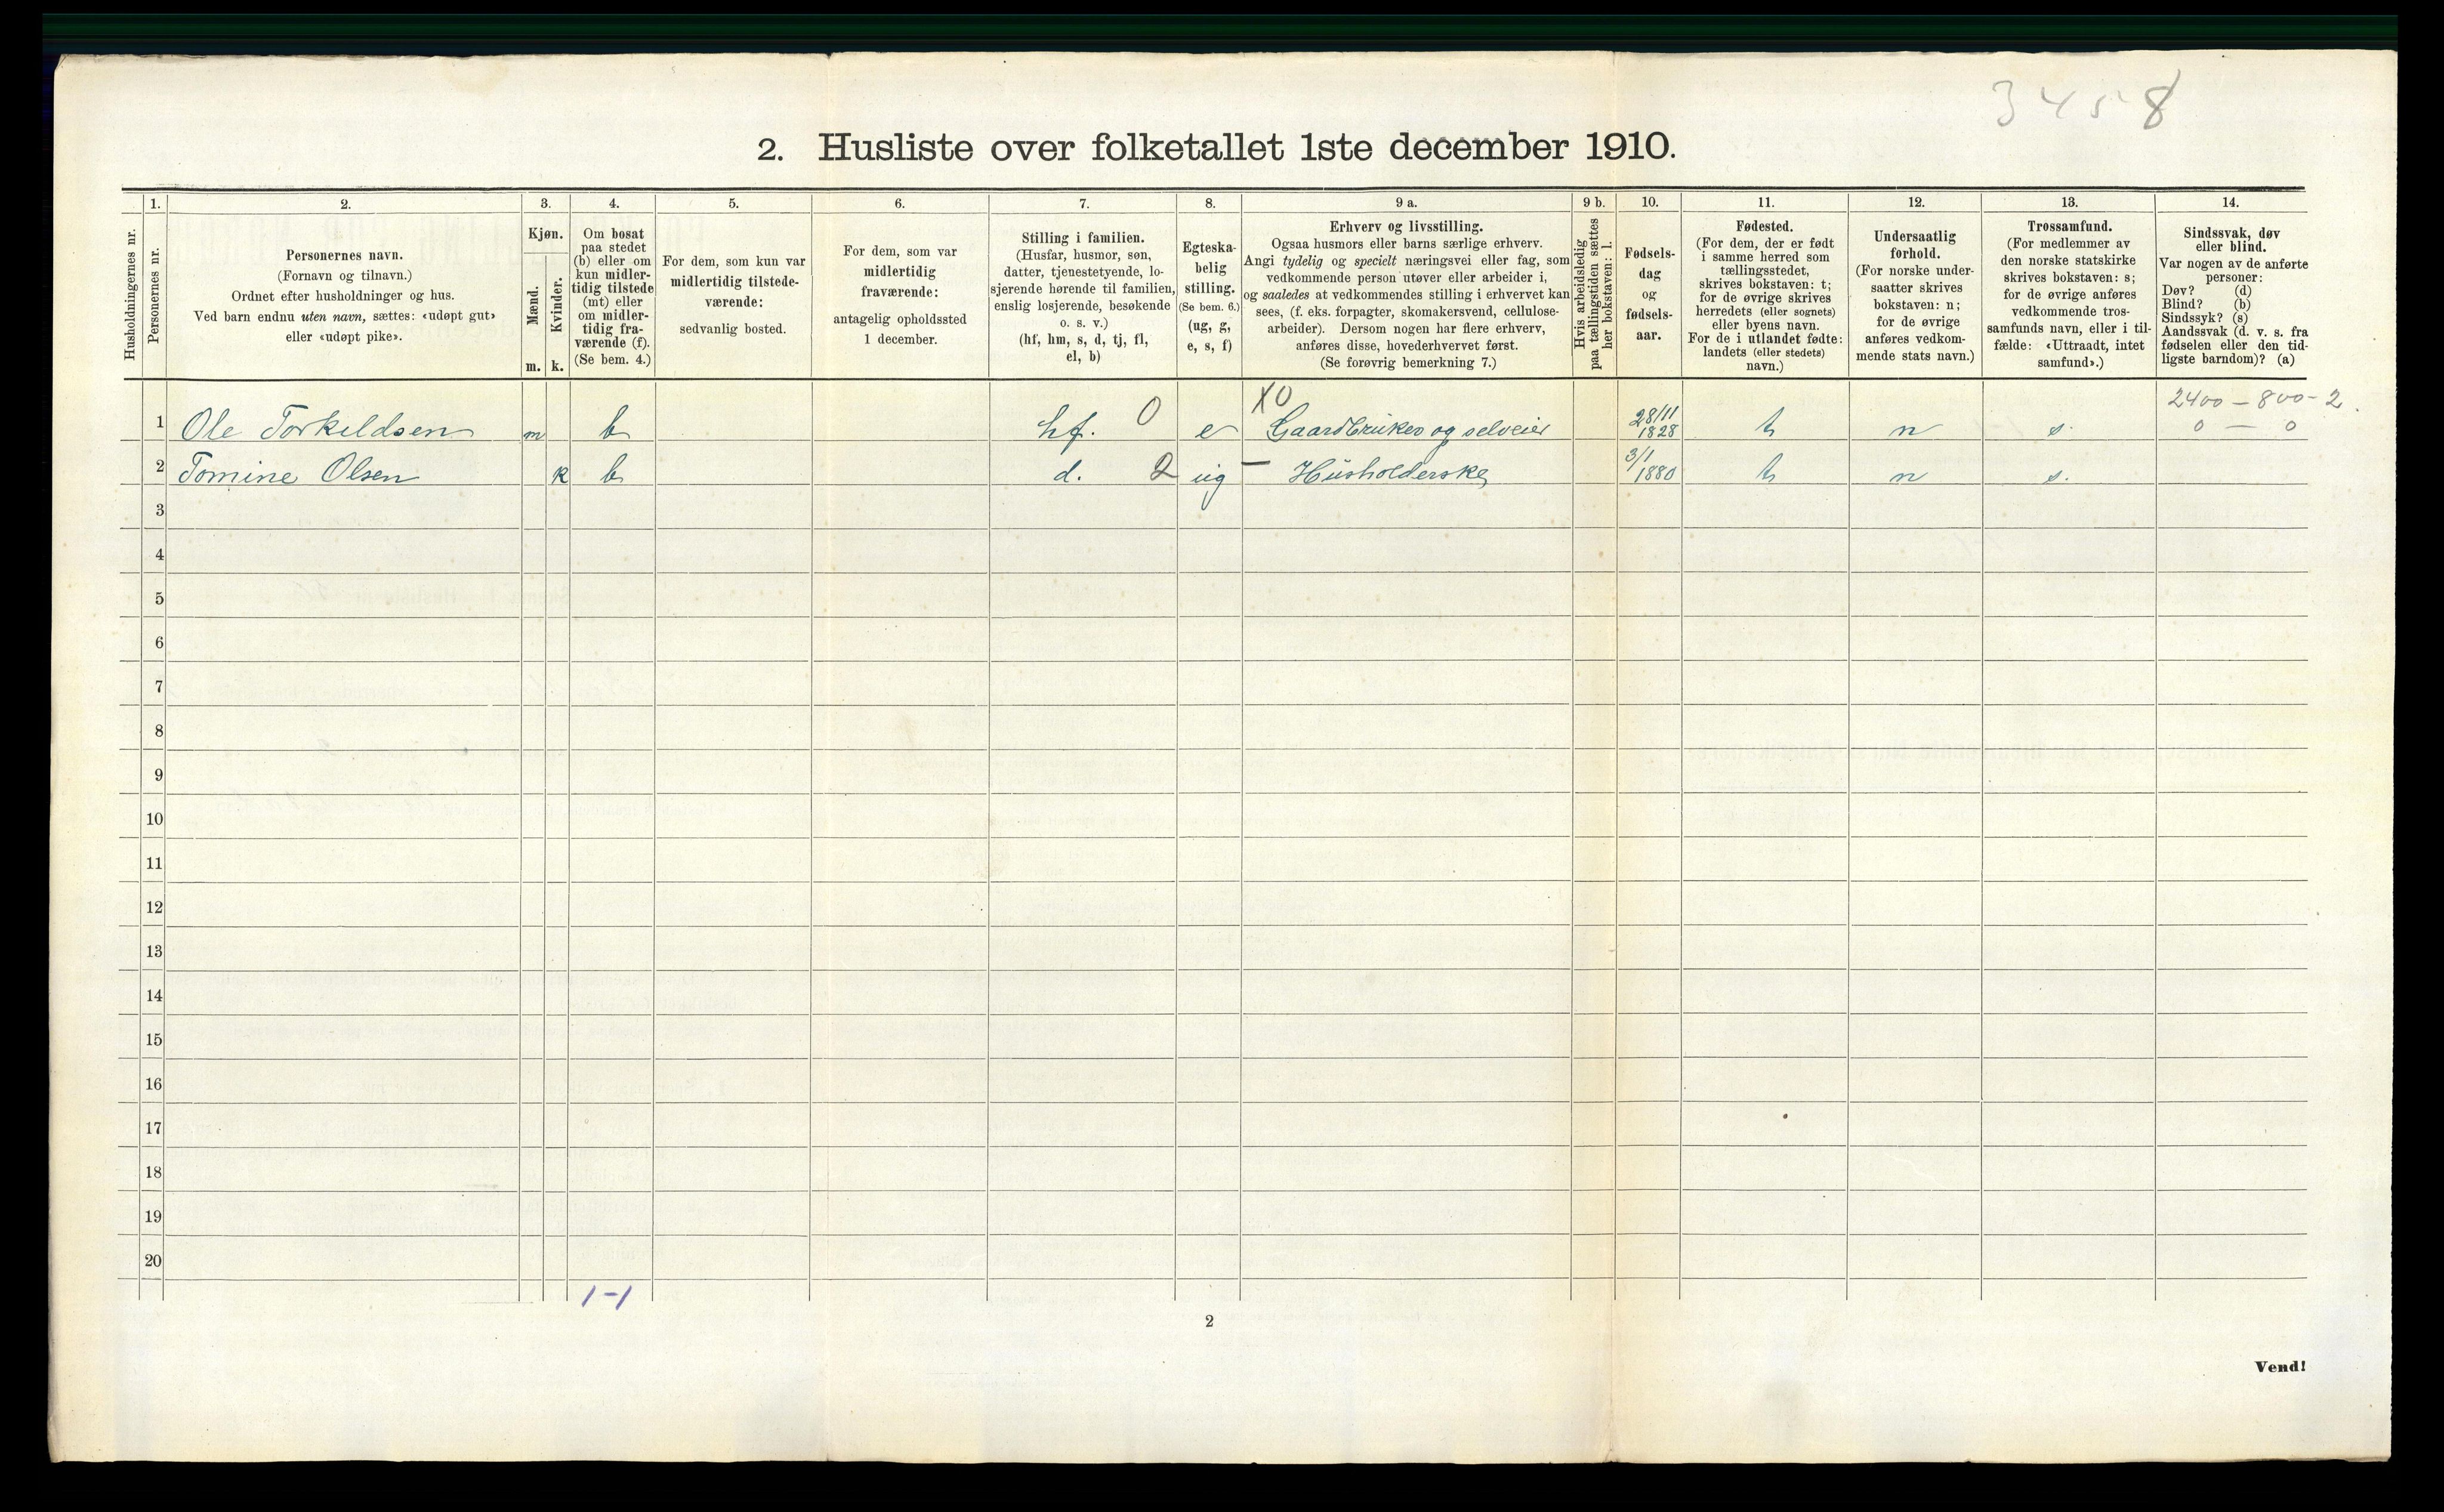 3458
2. Husliste over folketallet 1ste december 1910.
Husholdningernes nr.
1.
Personernes nr.
2.
Personernes navn.
(Fornavn og tilnavn.)
Ordnet efter husholdninger og hus.
Ved barn endnu uten navn, sættes: «udøpt gut»
eller «udøpt pike».
3.
Kjøn.
Mænd.
Kvinder.
m. k.
4.
Om bosat
paa stedet
(b) eller om
kun midler-
tidig tilstede
(mt) eller
om midler-
tidig fra-
værende (f).
(Se bem. 4.)
5.
For dem, som kun var
midlertidig tilstede-
værende:
sedvanlig bosted.
6.
For dem, som var
midlertidig
fraværende:
antagelig opholdssted
1 december.
7.
Stilling i familien.
(Husfar, husmor, søn,
datter, tjenestetyende, lo-
sjerende hørende til familien,
enslig losjerende, besøkende
o. s. v.)
(hf, hm, s, d, tj, fl,
el, b)
8.
Egteska-
belig
stilling.
(Se bem. 6.)
(ug, g,
e, s, f)
9 a.
Erhverv og livsstilling.
Ogsaa husmors eller barns særlige erhverv.
Angi tydelig og specielt næringsvei eller fag, som
vedkommende person utøver eller arbeider i,
og saaledes at vedkommendes stilling i erhvervet kan
sees, (f. eks. forpagter, skomakersvend, cellulose-
arbeider). Dersom nogen har flere erhverv,
anføres disse, hovederhvervet først.
(Se forøvrig bemerkning 7.)
9 b.
Hvis arbeidsledig
paa tællingstiden sættes
her bokstaven: l.
10.
Fødsels-
dag
og
fødsels-
aar.
11.
Fødested.
(For dem, der er født
i samme herred som
tællingsstedet,
skrives bokstaven: t;
for de øvrige skrives
herredets (eller sognets)
eller byens navn.
For de i utlandet fødte:
landets (eller stedets)
navn.)
12.
Undersaatlig
forhold.
(For norske under-
saatter skrives
bokstaven: n;
for de øvrige
anføres vedkom-
mende stats navn.)
13.
Trossamfund.
(For medlemmer av
den norske statskirke
skrives bokstaven: s;
for de øvrige anføres
vedkommende tros-
samfunds navn, eller i til-
fælde: «Uttraadt, intet
samfund».)
14.
Sindssvak, døv
eller blind.
Var nogen av de anførte
personer:
Døv? (d)
Blind? (b)
Sindssyk? (s)
Aandssvak (d. v. s. fra
fødselen eller den tid-
ligste barndom)? (a)
X0 2400 - 800 - 2
1 Ole Torkildsen m b hf. 0 e Gaardbruker og selveier 28/11 1828 t n s. 0 - 0
2 Tomine Olsen k b d. 2 ug - Husholderske 3/1 1880 t n s.
3
4
5
6
7
8
9
10
11
12
13
14
15
16
17
18
19
20
1-1
2
Vend!